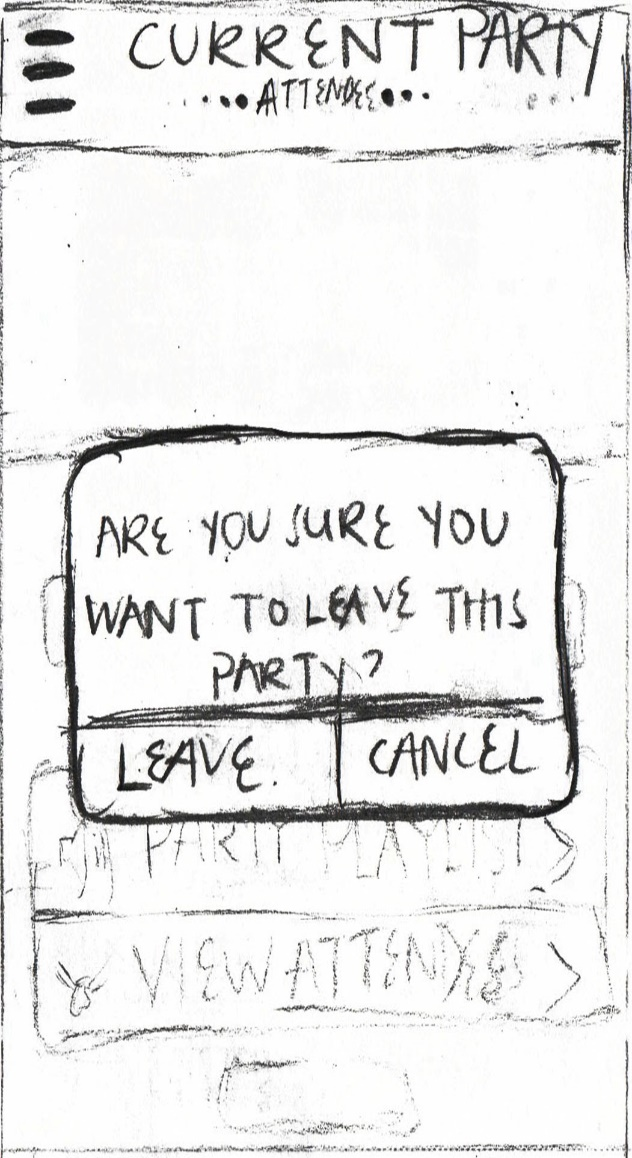 CURRENT PARTY
ATTENDEE
ARE YOU SURE YOU
WANT TO LEAVE THIS
PARTY?
LEAVE.
CANCEL
PARTY PLAYLIST
VIEW ATTENDEES